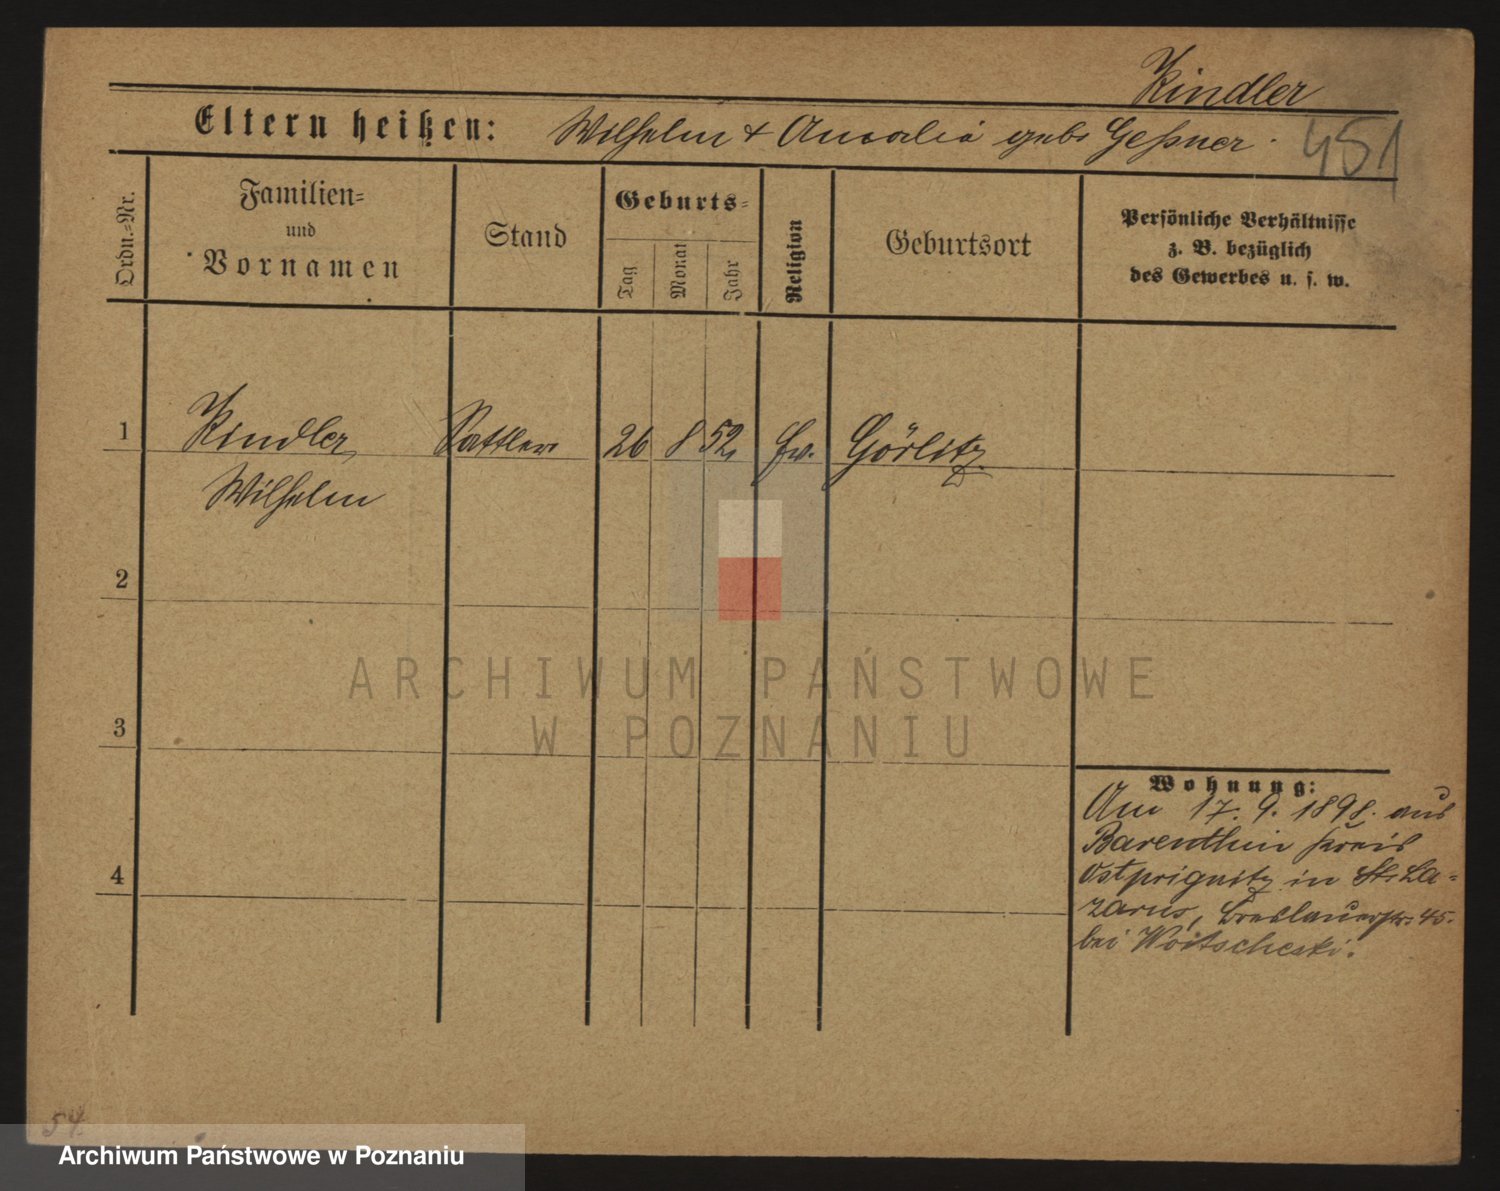 Kindler
Eltern heißen: Wilhelm + Amalia geb. Geßner.
451
Ordn.-Nr.
Familien-
und
Vornamen
Stand
Geburts-
Tag
Monat
Jahr
Religion
Geburtsort
Persönliche Verhältnisse
z. B. bezüglich
des Gewerbes u. s. w.
1
Kindler, Sattler 26 8 52, Ev. Görlitz
Wilhelm
2
3
4
Wohnung:
Am 17. 9. 1898. aus
Barenthin Kreis
Ostprignitz in St. La-
zarus, Breslauerstr. 45.
bei Woitscheski.
54.
ARCHIWUM PAŃSTWOWE
W POZNANIU
Archiwum Państwowe w Poznaniu